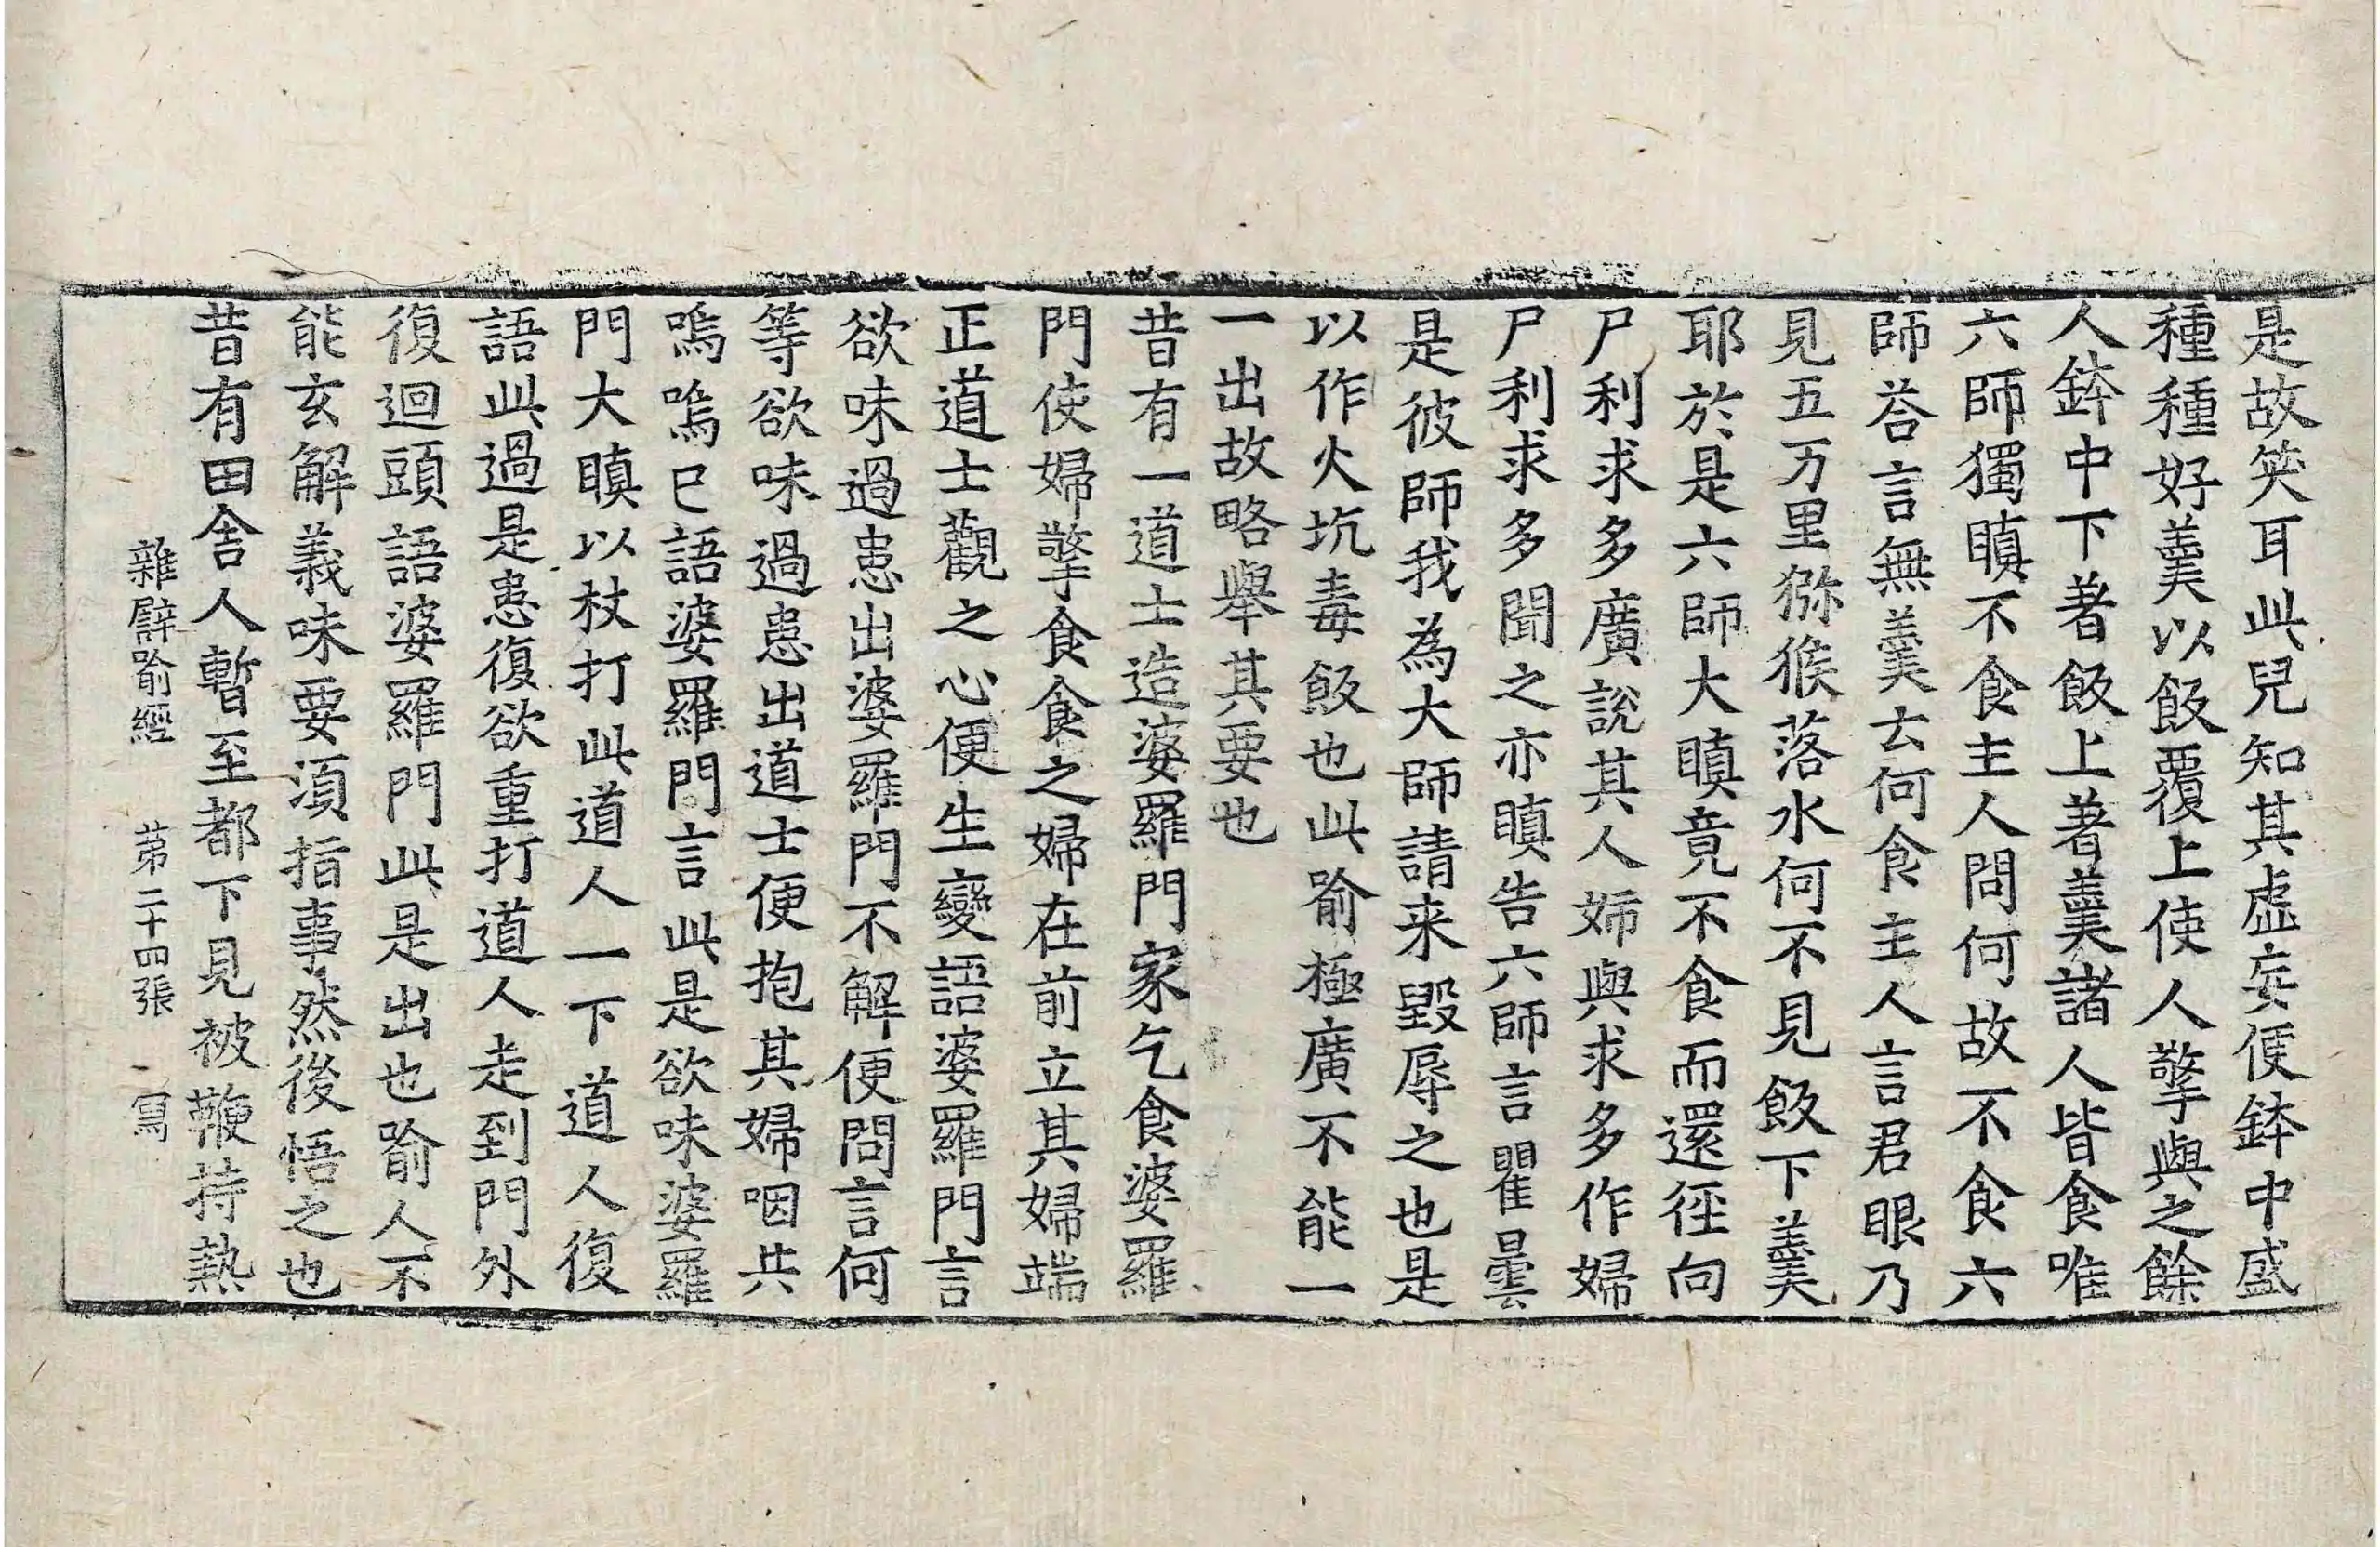 是故笑耳此兒知其虛妄便鉢中盛
種種好羹以飯覆上使人擎與之餘
人鉢中下著飯上著羹諸人皆食唯
六師獨瞋不食主人問何故不食六
師荅言無羹云何食主人言君眼乃
見五万里獼猴落水何不見飯下羹
耶於是六師大瞋竟不食而還徑向
尸利求多廣說其人姉與求多作婦
尸利求多聞之亦瞋告六師言瞿曇
是彼師我為大師請来毀辱之也是
以作火坑毒飯也此喻極廣不能一
一出故略舉其要也
昔有一道士造婆羅門家乞食婆羅
門使婦擎食食之婦在前立其婦端
正道士觀之心便生變語婆羅門言
欲味過患出婆羅門不解便問言何
等欲味過患出道士便抱其婦咽共
嗚嗚已語婆羅門言此是欲味婆羅
門大瞋以杖打此道人一下道人復
語此過是患復欲重打道人走到門外
復迴頭語婆羅門此是出也喻人不
能玄解義味要須指事然後悟之也
昔有田舍人暫至都下見被鞭持熱
雜譬喻經　第二十四張　寫